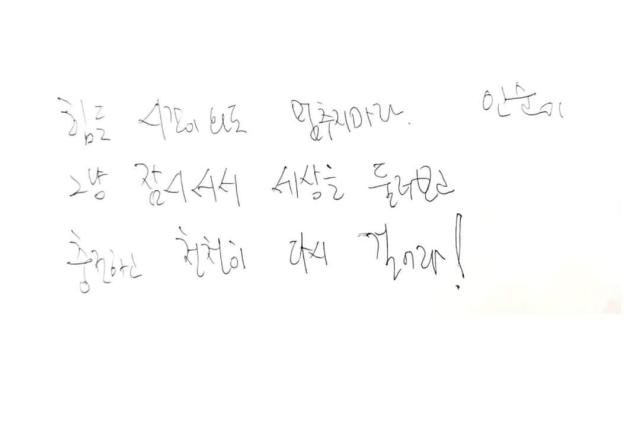 힘든 시간이 와도 멈추지마라. 안순이
그냥 잠시 서서 세상을 둘러보고
충전하고 천천히 다시 걸어라!